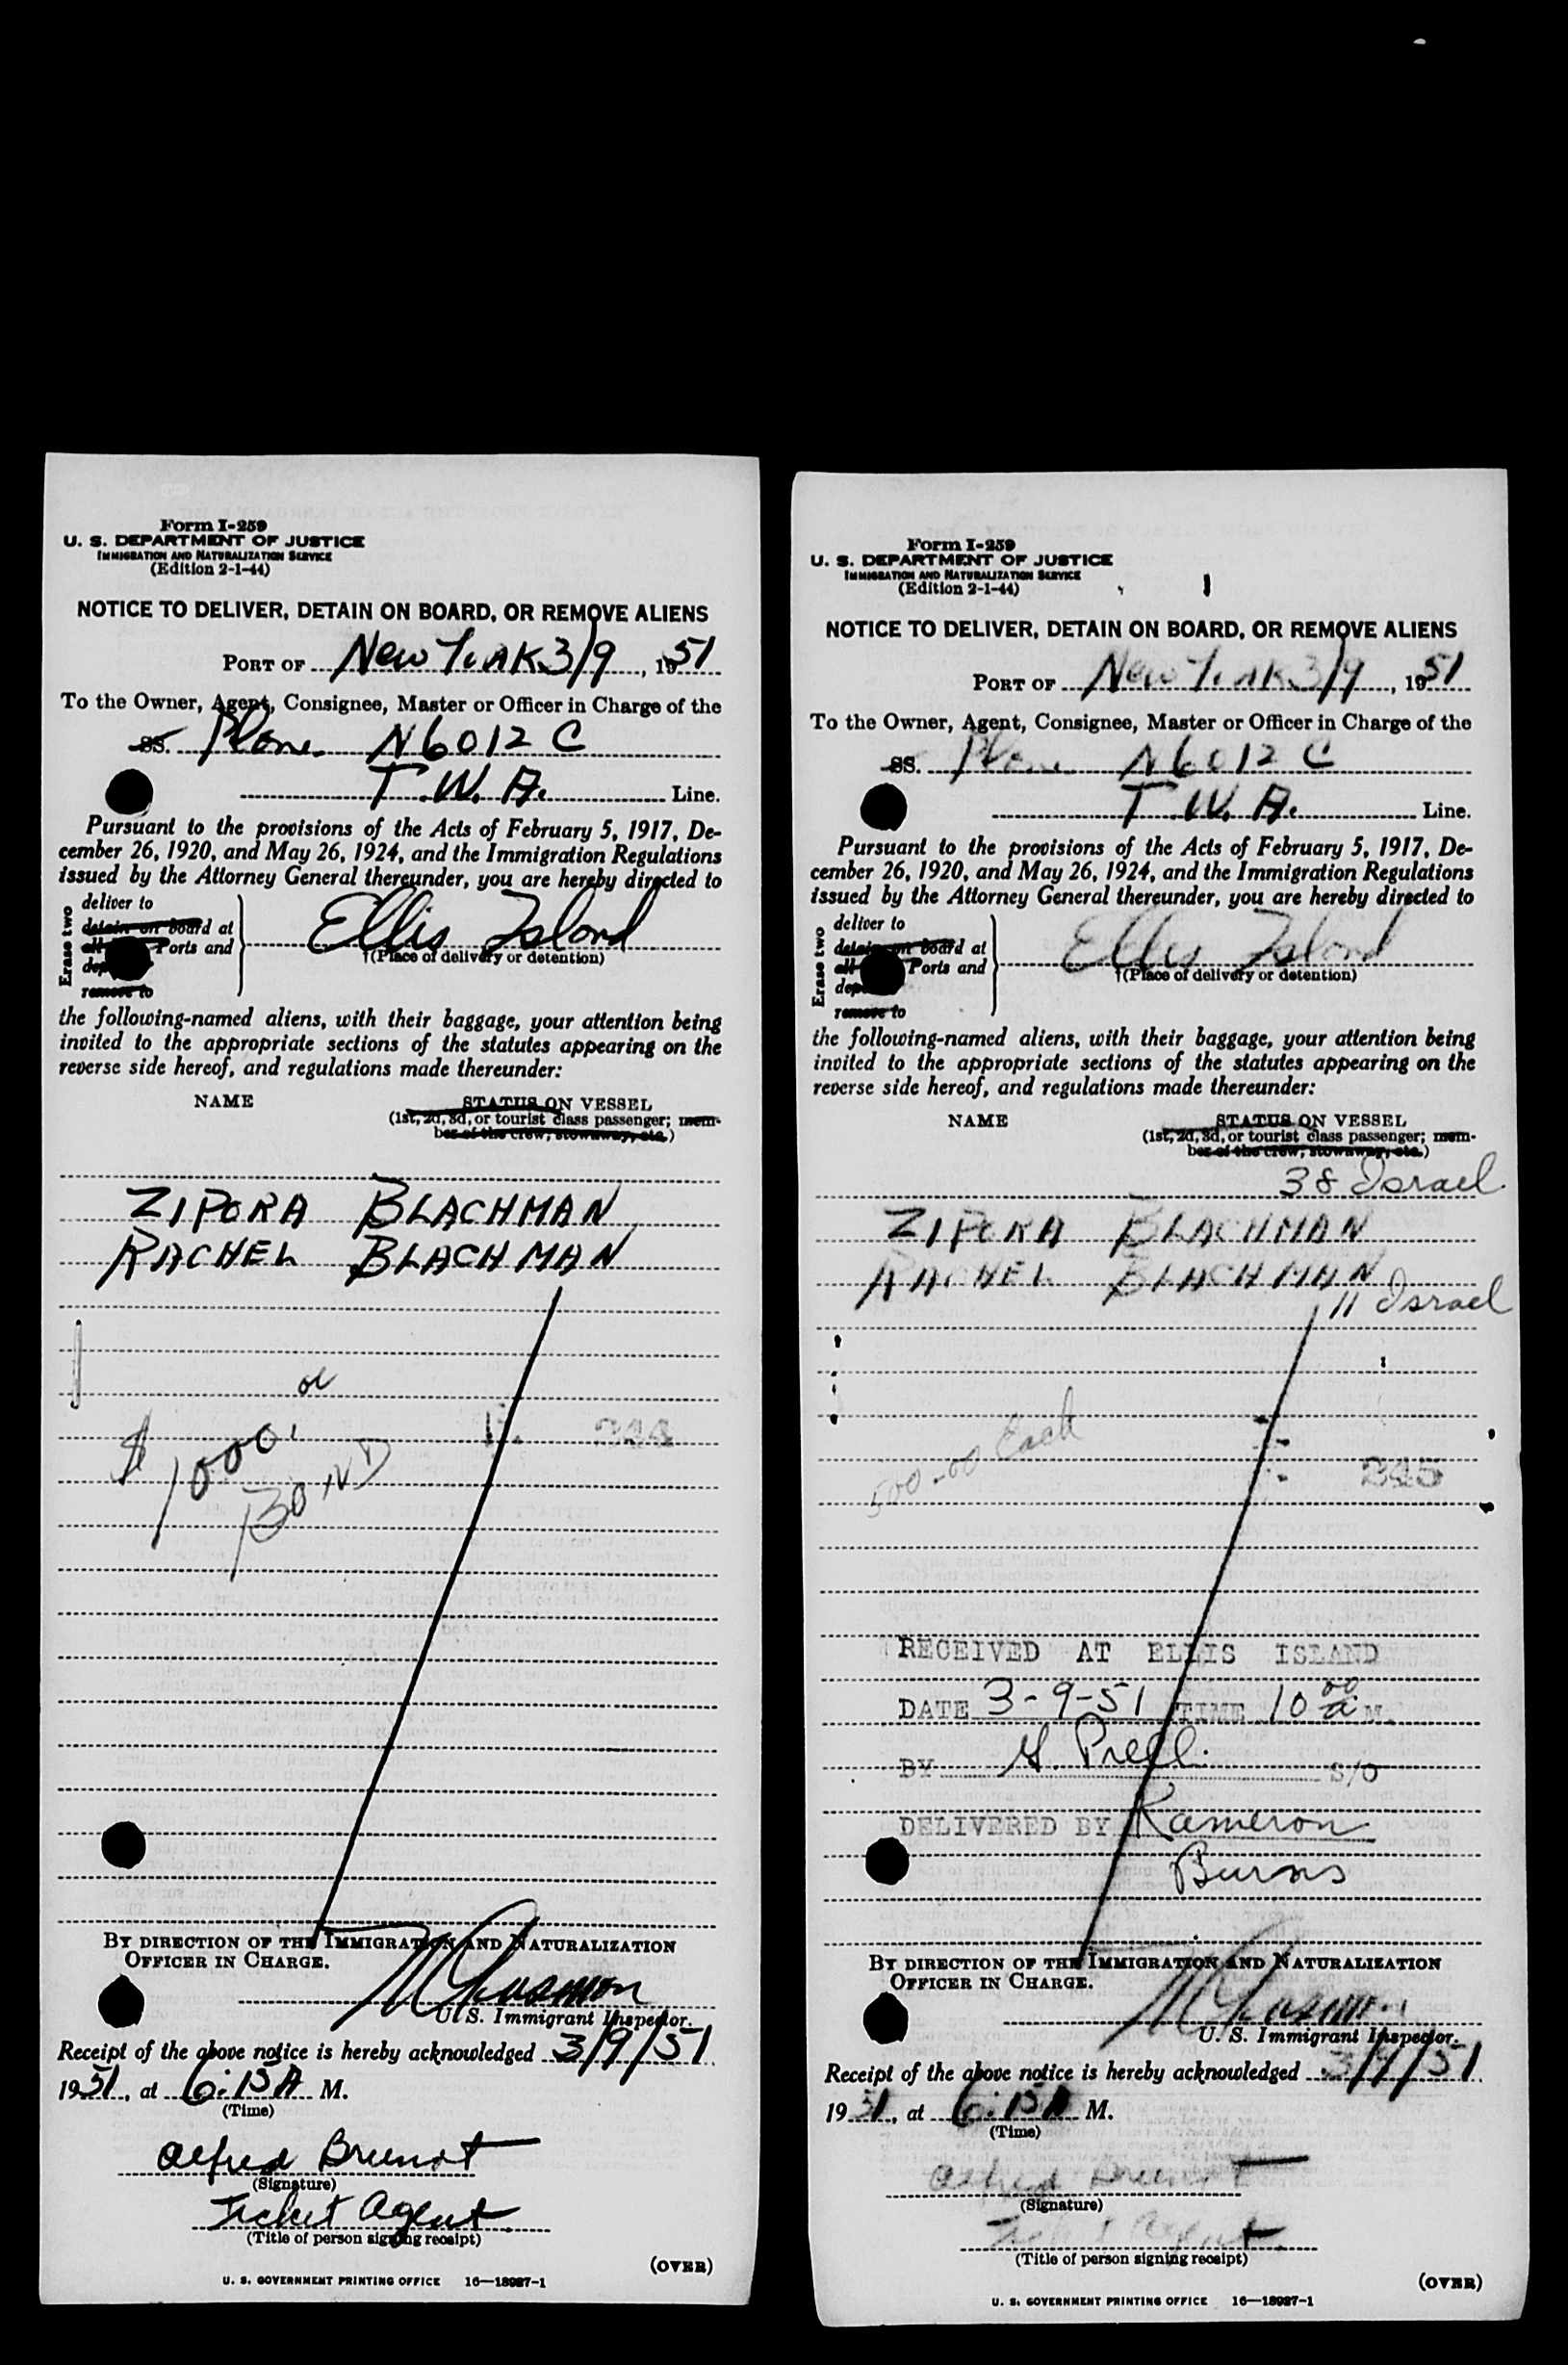 Form I-259
U. S. DEPARTMENT OF JUSTICE
IMMIGRATION AND NATURALIZATION SERVICE
(Edition 2-1-44)
NOTICE TO DELIVER, DETAIN ON BOARD, OR REMOVE ALIENS
PORT OF New York 3/9, 1951
To the Owner, Agent, Consignee, Master or Officer in Charge of the
SS. Plane N6012C
T.W.A. Line.
Pursuant to the provisions of the Acts of February 5, 1917, De-
cember 26, 1920, and May 26, 1924, and the Immigration Regulations
issued by the Attorney General thereunder, you are hereby directed to
Erase two
deliver to
detain on board at
all Ports and
remove to
Ellis Island
†(Place of delivery or detention)
the following-named aliens, with their baggage, your attention being
invited to the appropriate sections of the statutes appearing on the
reverse side hereof, and regulations made thereunder:
NAME STATUS ON VESSEL
(1st, 2d, 3d, or tourist class passenger; mem-
ber of the crew, stowaway, etc.)
ZIPORA BLACHMAN
RACHEL BLACHMAN
$1000.
BOND
BY DIRECTION OF THE IMMIGRATION AND NATURALIZATION
OFFICER IN CHARGE.
U. S. Immigrant Inspector.
Receipt of the above notice is hereby acknowledged 3/9/51
1951, at 6:15 A M.
(Time)
Alfred Brunot
(Signature)
Ticket Agent
(Title of person signing receipt)
(OVER)
U. S. GOVERNMENT PRINTING OFFICE 16—18987-1
Form I-259
U. S. DEPARTMENT OF JUSTICE
IMMIGRATION AND NATURALIZATION SERVICE
(Edition 2-1-44)
NOTICE TO DELIVER, DETAIN ON BOARD, OR REMOVE ALIENS
PORT OF New York 3/9, 1951
To the Owner, Agent, Consignee, Master or Officer in Charge of the
SS. Plane N6012C
T.W.A. Line.
Pursuant to the provisions of the Acts of February 5, 1917, De-
cember 26, 1920, and May 26, 1924, and the Immigration Regulations
issued by the Attorney General thereunder, you are hereby directed to
Erase two
deliver to
detain on board at
all Ports and
remove to
Ellis Island
†(Place of delivery or detention)
the following-named aliens, with their baggage, your attention being
invited to the appropriate sections of the statutes appearing on the
reverse side hereof, and regulations made thereunder:
NAME STATUS ON VESSEL
(1st, 2d, 3d, or tourist class passenger; mem-
ber of the crew, stowaway, etc.)
38 Israel
ZIPORA BLACHMAN
RACHEL BLACHMAN
11 Israel
500-00 Each
345
RECEIVED AT ELLIS ISLAND
DATE 3-9-51 TIME 10 00 a M.
BY S/O
DELIVERED BY Kameron
Burns
BY DIRECTION OF THE IMMIGRATION AND NATURALIZATION
OFFICER IN CHARGE.
U. S. Immigrant Inspector.
Receipt of the above notice is hereby acknowledged 3/9/51
1951, at 6:15 A M.
(Time)
Alfred Brunot
(Signature)
Ticket Agent
(Title of person signing receipt)
(OVER)
U. S. GOVERNMENT PRINTING OFFICE 16—18987-1